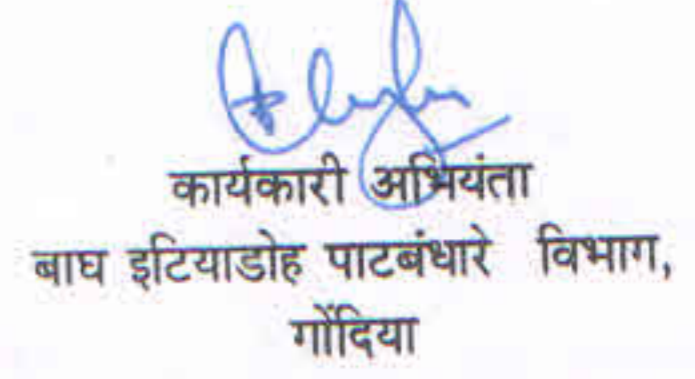 कार्यकारी अभियंता
बाघ इटियाडोह पाटबंधारे विभाग,
गोंदिया